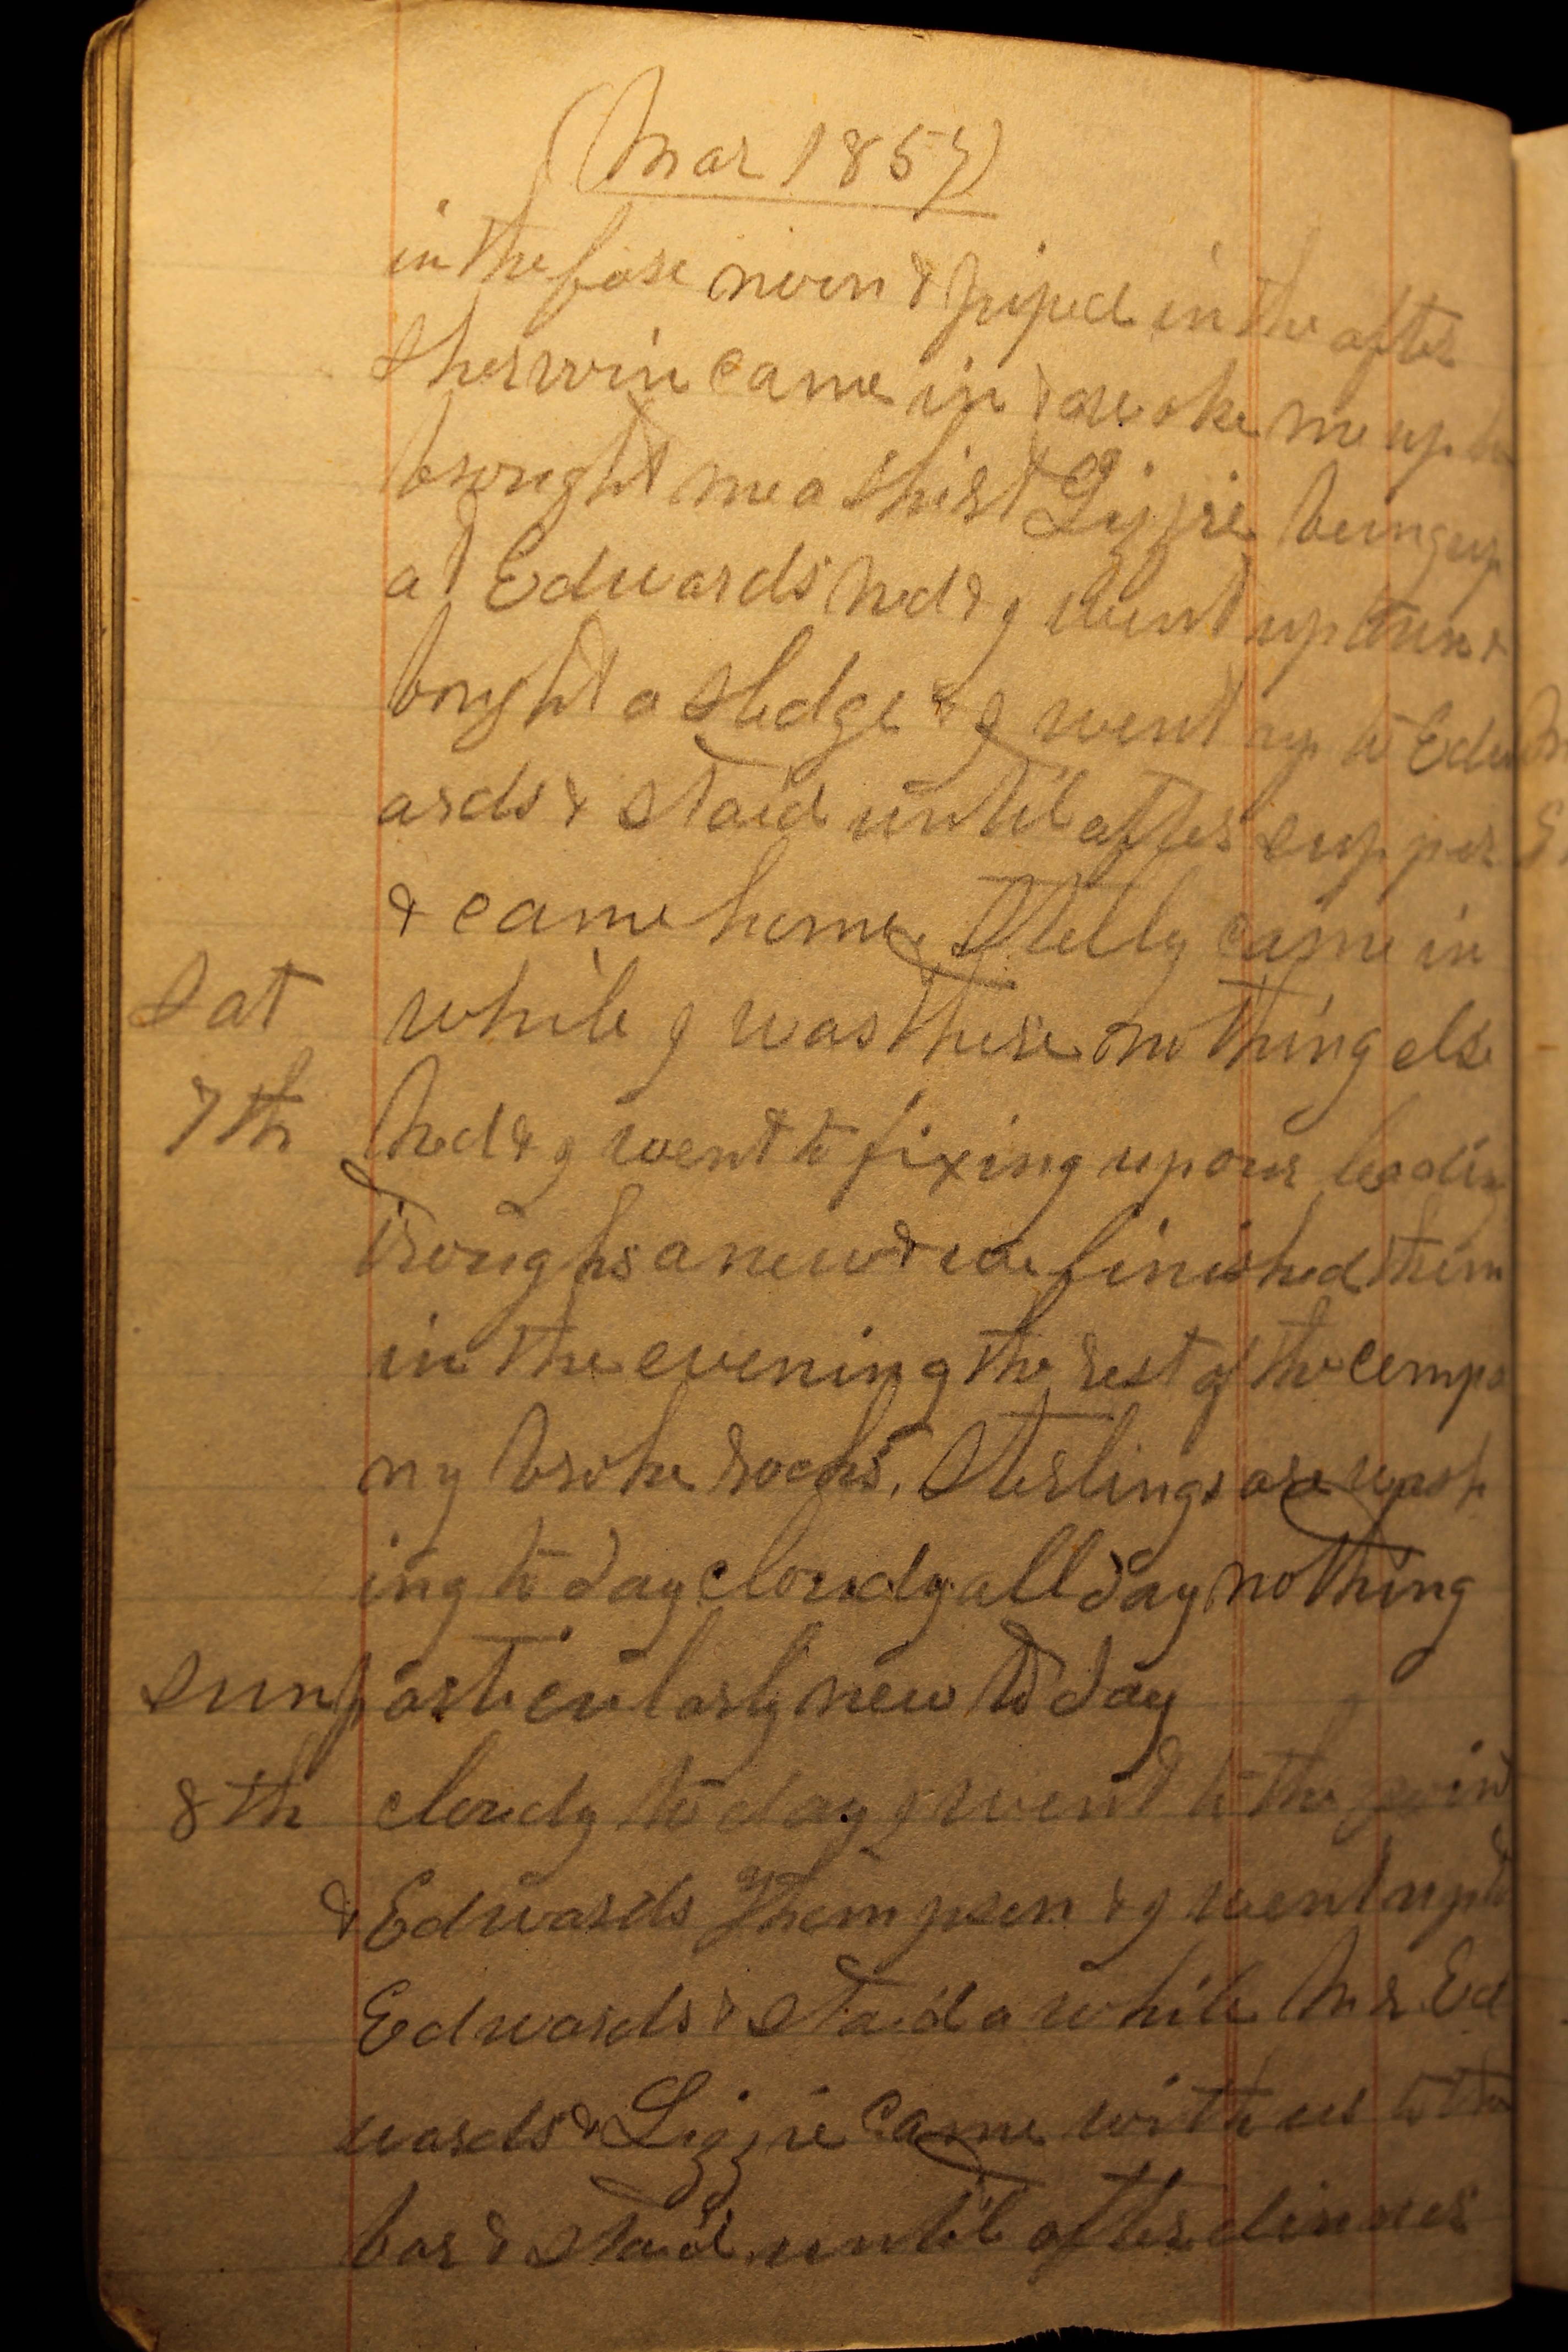 (Mar 1857)
in the fore noon & piped in the after
Sherwin came in & awoke me up he
brought me a shirt Lizzie being up
at Edwards Ned & I went up town &
bought a sledge & I went up to Edw
ards & staid until after supper
& came home. Stelly came in
Sat while I was there nothing else
7th Ned & I went to fixing up our leading
troughs anew & we finished them
in the evening the rest of the compa
ny broke rocks. Sterlings are wash
ing to day cloudy all day nothing
Sun particularly new to day
8th cloudy to day I went to the point
& Edwards Thompson & I went up to
Edwards & staid a while Mr Ed
wards & Lizzie came with us to the
bar & staid until after dinner